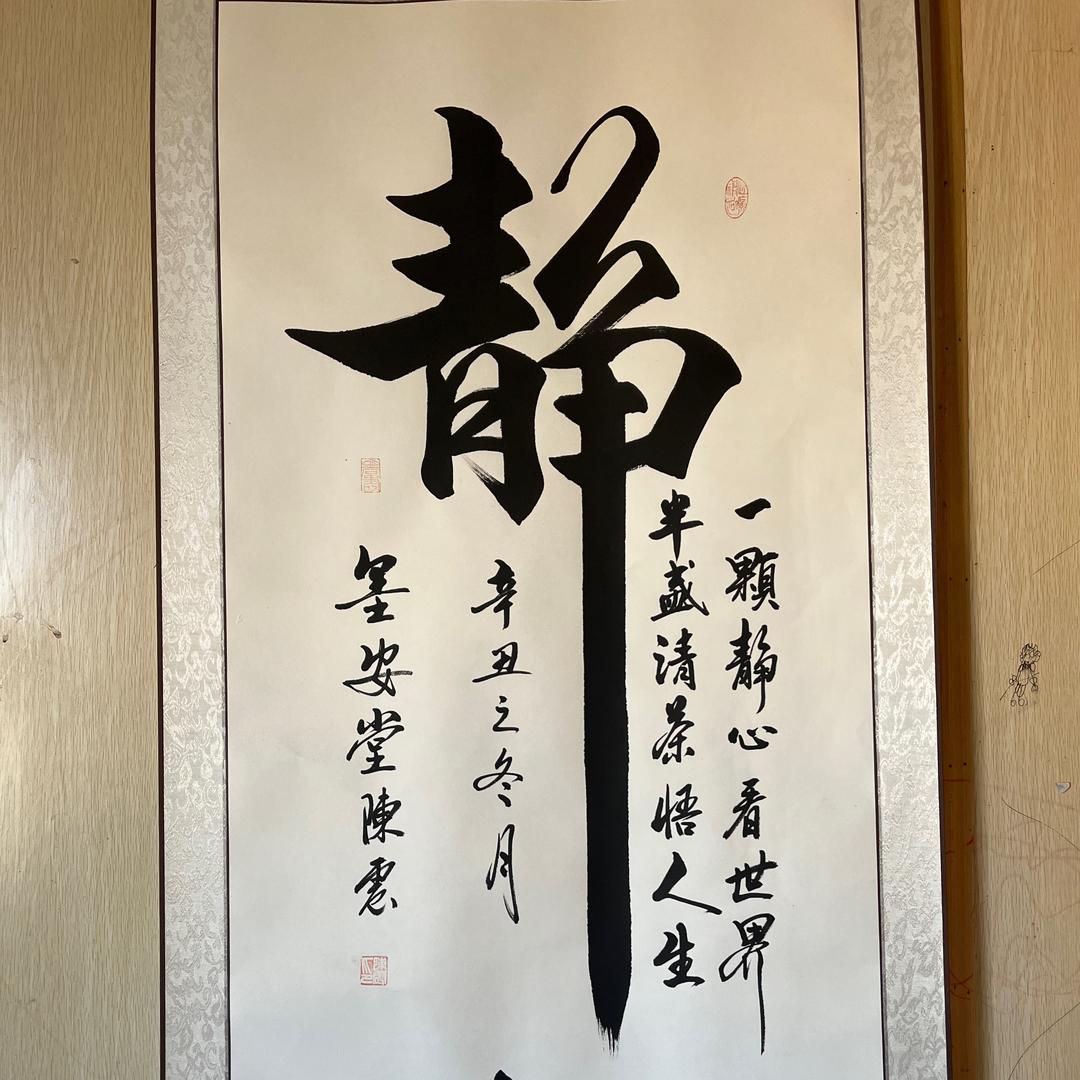 靜
一顆靜心看世界
半盞清茶悟人生
辛丑之冬月
墨安堂陳震